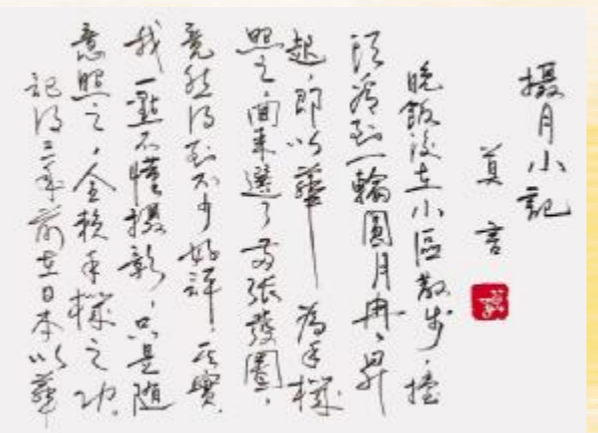 摄月小記
莫言
晚飯後在小區散步，抬
頭看到一輪圓月冉冉昇
起，即以華——為手機
照之，回来選了两張發圈，
竟然得到不少好評，其實
我一點不懂摄影，只是随
意照之，全賴手機之功。
記得三年前在日本以華